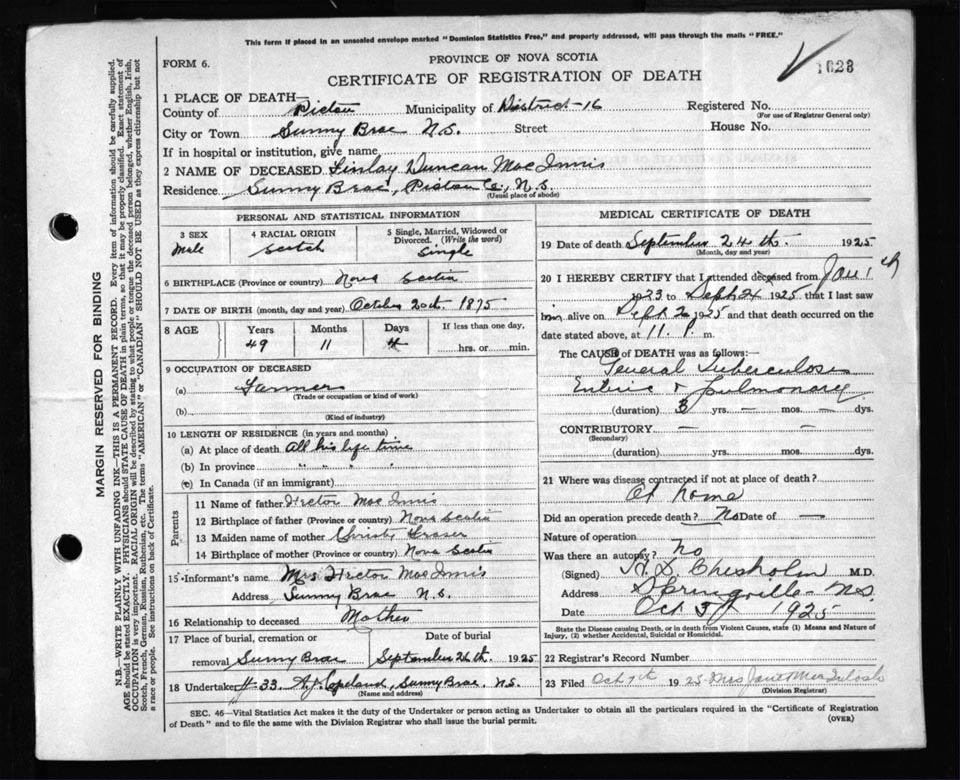 This form if placed in an unsealed envelope marked "Dominion Statistics Free," and properly addressed, will pass through the mails "FREE."
FORM 6.
PROVINCE OF NOVA SCOTIA
1628
CERTIFICATE OF REGISTRATION OF DEATH
1 PLACE OF DEATH—
County of Pictou Municipality of District-16 Registered No.
(For use of Registrar General only)
City or Town Sunny Brae N.S. Street House No.
If in hospital or institution, give name
2 NAME OF DECEASED Finlay Duncan MacInnis
Residence Sunny Brae, Pictou Co., N.S.
(Usual place of abode)
PERSONAL AND STATISTICAL INFORMATION
3 SEX 4 RACIAL ORIGIN 5 Single, Married, Widowed or Divorced. (Write the word)
Male Scotch Single
6 BIRTHPLACE (Province or country) Nova Scotia
7 DATE OF BIRTH (month, day and year) October 20th 1875
8 AGE Years Months Days If less than one day,
49 11 4 hrs. or min.
9 OCCUPATION OF DECEASED
(a) Farmer
(Trade or occupation or kind of work)
(b)
(Kind of industry)
10 LENGTH OF RESIDENCE (in years and months)
(a) At place of death All his life time
(b) In province " " " "
(c) In Canada (if an immigrant)
Parents
11 Name of father Hector MacInnis
12 Birthplace of father (Province or country) Nova Scotia
13 Maiden name of mother Christy Fraser
14 Birthplace of mother (Province or country) Nova Scotia
15 Informant's name Mrs Hector MacInnis
Address Sunny Brae N.S.
16 Relationship to deceased Mother
17 Place of burial, cremation or removal Date of burial
Sunny Brae September 26th 1925
18 Undertaker #33 A.J. Copeland, Sunny Brae, N.S.
(Name and address)
MEDICAL CERTIFICATE OF DEATH
19 Date of death September 24th 1925
(Month, day and year)
20 I HEREBY CERTIFY that I attended deceased from Jan 1
1923 to Sept 24 1925 that I last saw
him alive on Sept 1925 and that death occurred on the
date stated above, at 11 P. m.
The CAUSE of DEATH was as follows:—
General Tuberculosis
Enteric & Pulmonary
(duration) 3 yrs. — mos. — dys.
CONTRIBUTORY —
(Secondary)
(duration) yrs. mos. dys.
21 Where was disease contracted if not at place of death?
At home
Did an operation precede death? No Date of —
Nature of operation
Was there an autopsy? No
(Signed) Chisholm M.D.
Address Springville N.S.
Date Oct 1925
State the Disease causing Death, or in death from Violent Causes, state (1) Means and Nature of
Injury, (2) whether Accidental, Suicidal or Homicidal.
22 Registrar's Record Number
23 Filed Oct 7th 1925 Mrs Janet MacIntosh
(Division Registrar)
SEC. 46—Vital Statistics Act makes it the duty of the Undertaker or person acting as Undertaker to obtain all the particulars required in the "Certificate of Registration
of Death" and to file the same with the Division Registrar who shall issue the burial permit. (OVER)
MARGIN RESERVED FOR BINDING
N.B.—WRITE PLAINLY WITH UNFADING INK—THIS IS A PERMANENT RECORD. Every item of information should be carefully supplied.
AGE should be stated EXACTLY. PHYSICIANS should STATE CAUSE OF DEATH in plain terms, so that it may be properly classified. Exact statement of
OCCUPATION is very important. RACIAL ORIGIN will be described by stating to what people or tongue the deceased person belonged, whether English, Irish,
Scotch, French, German, Russian, Ruthenian, etc. The terms "AMERICAN" or "CANADIAN" SHOULD NOT BE USED as they express citizenship but not
a race or people. See instructions on back of Certificate.